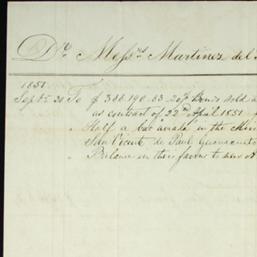 Dr. Messrs Martinez del
1851
Sept 20 To $ 388.190.83 of Bonds sold
as contract of 22nd April 1851
Half a bar in the
San Vicente de Paul
Balance in their favor to new